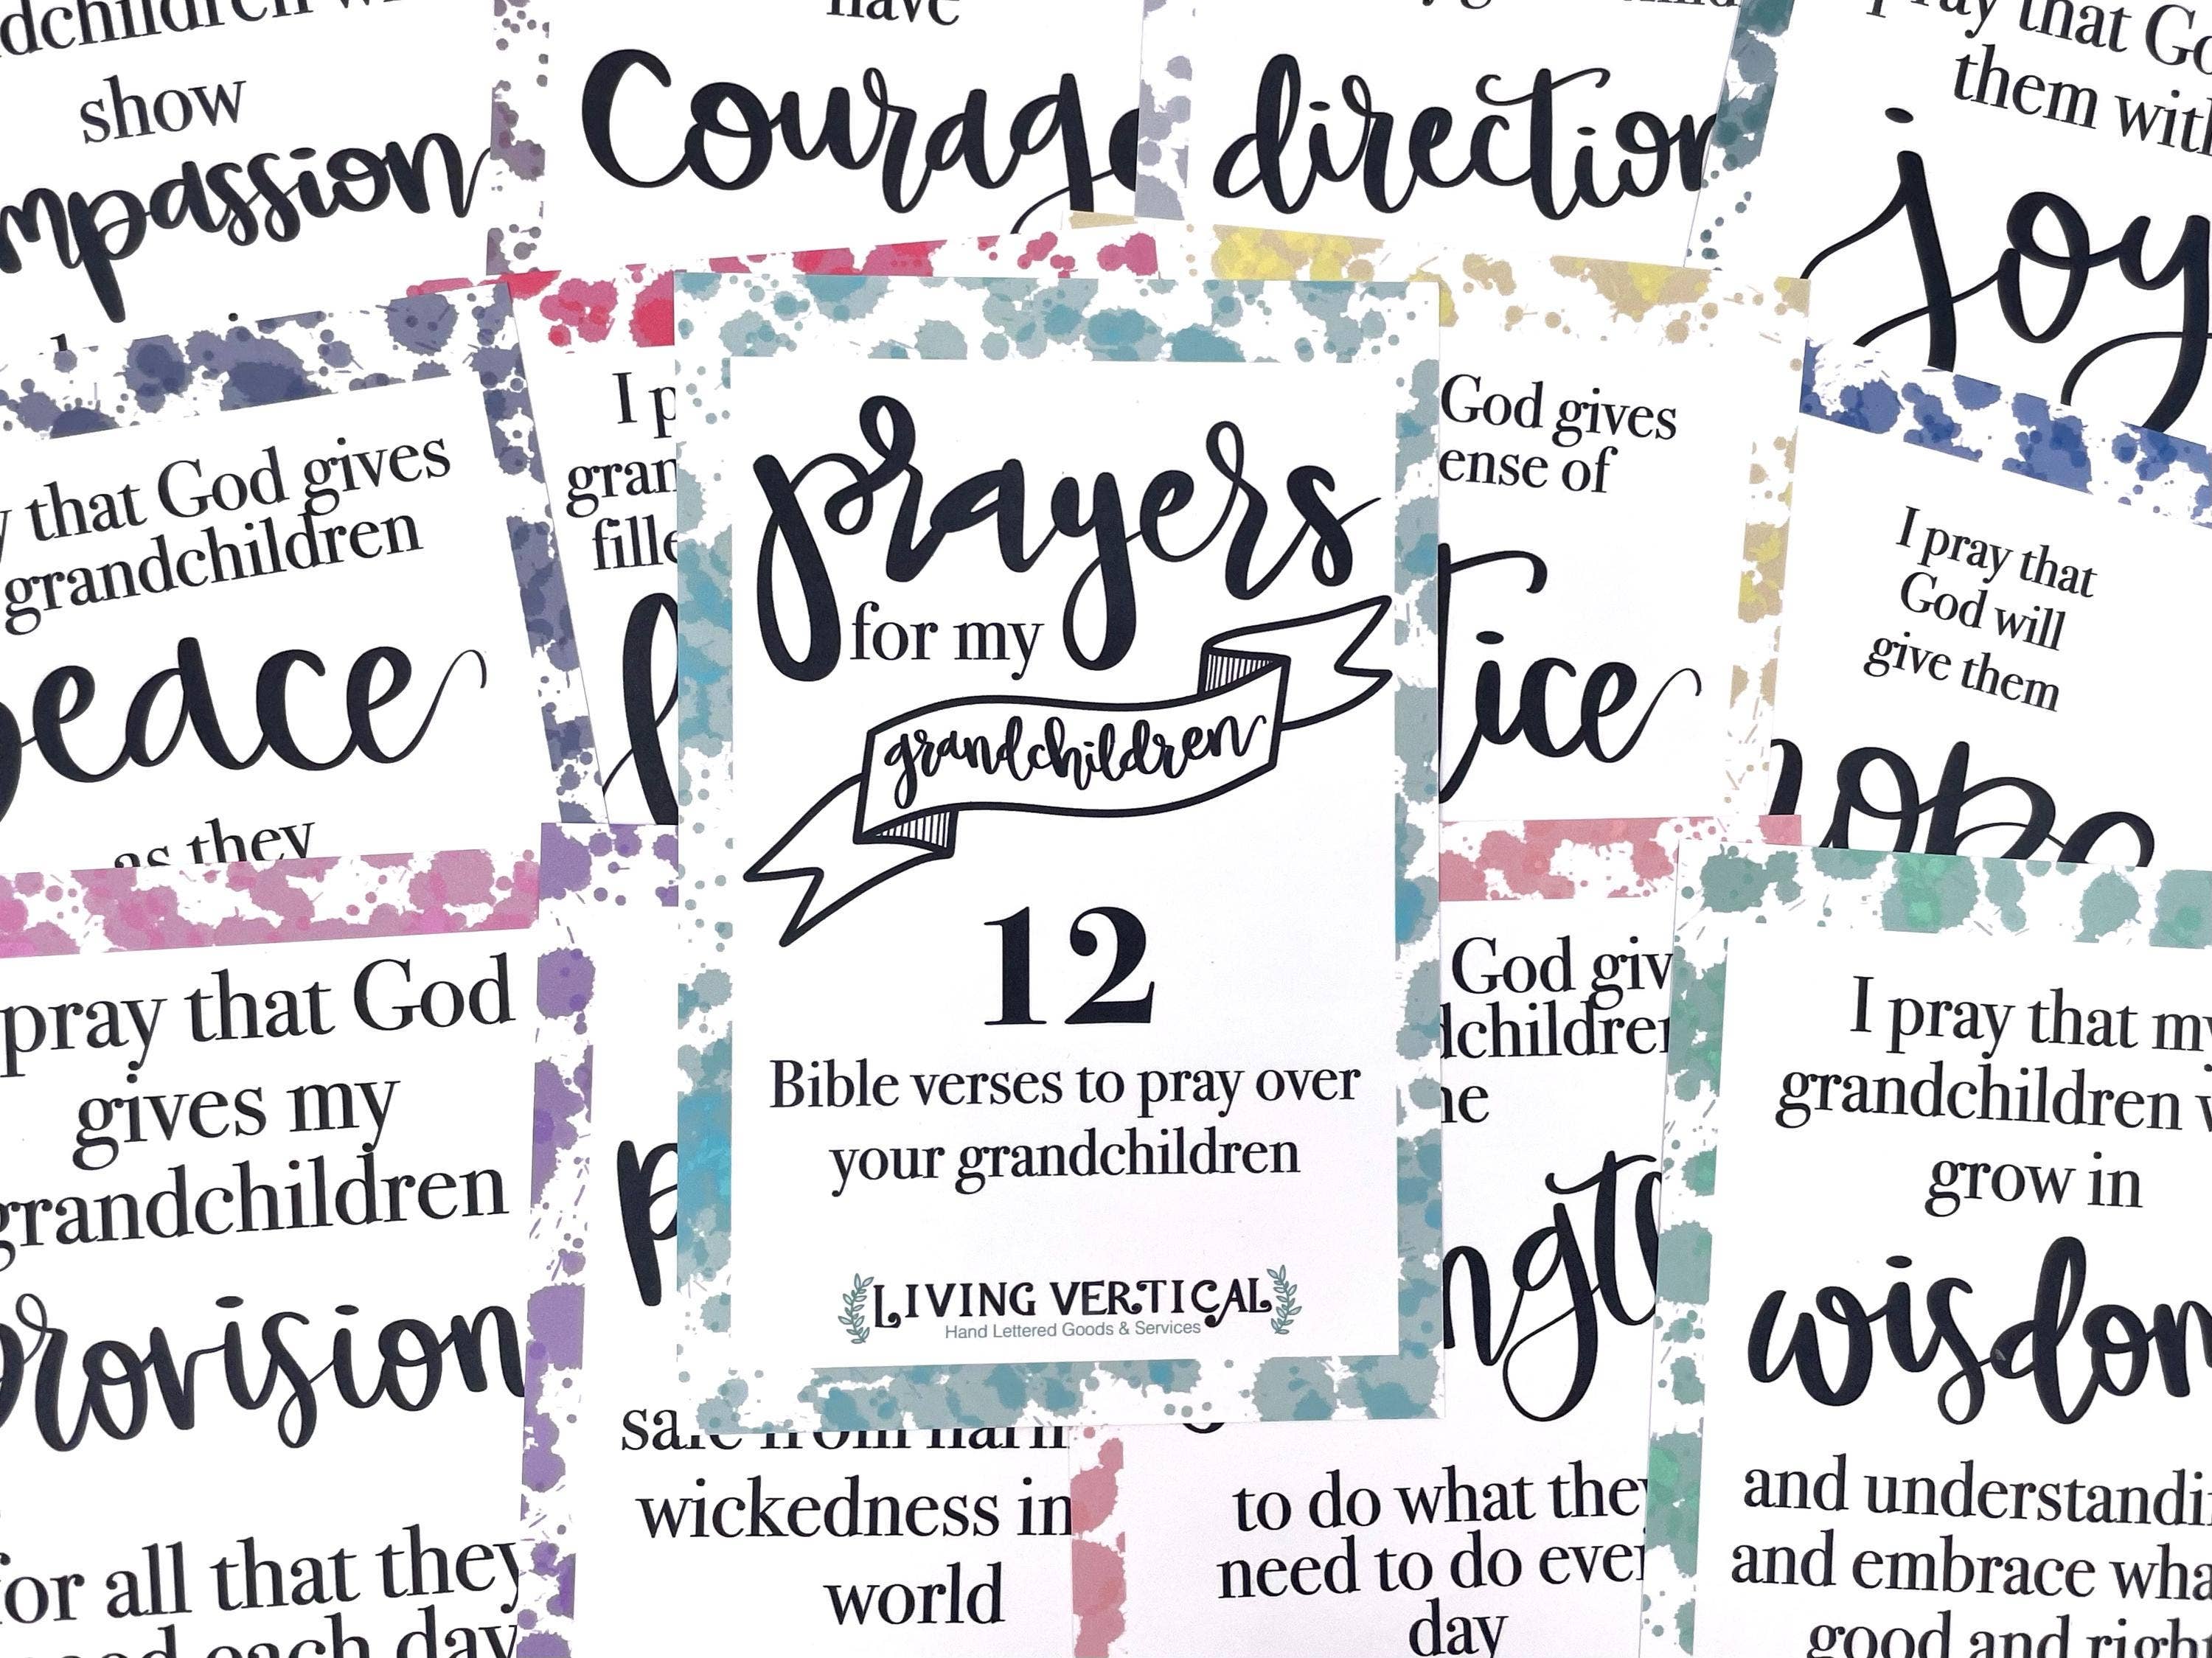 show
have
Courage
direction
pray that
them with
joy
that God gives
grandchildren
peace
as they
I
God gives
ense of
tice
I pray that
God will
give them
hope
prayers
for my
grandchildren
12
Bible verses to pray over
your grandchildren
LIVING VERTICAL
Hand Lettered Goods & Services
pray that God
gives my
grandchildren
provision
for all that they
need each day
safe from harm
wickedness in
world
God giv
dchildren
ngt
to do what they
need to do ever
day
I pray that my
grandchildren
grow in
wisdom
and understandi
and embrace wha
good and right